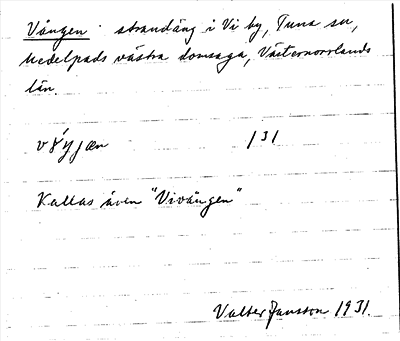 Vången strandäng i Vi by, Tuna sn,
Medelpads västra domsaga, Västernorrlands
län.
131
Kallas även "Vivången"
Valter Jansson 1931.